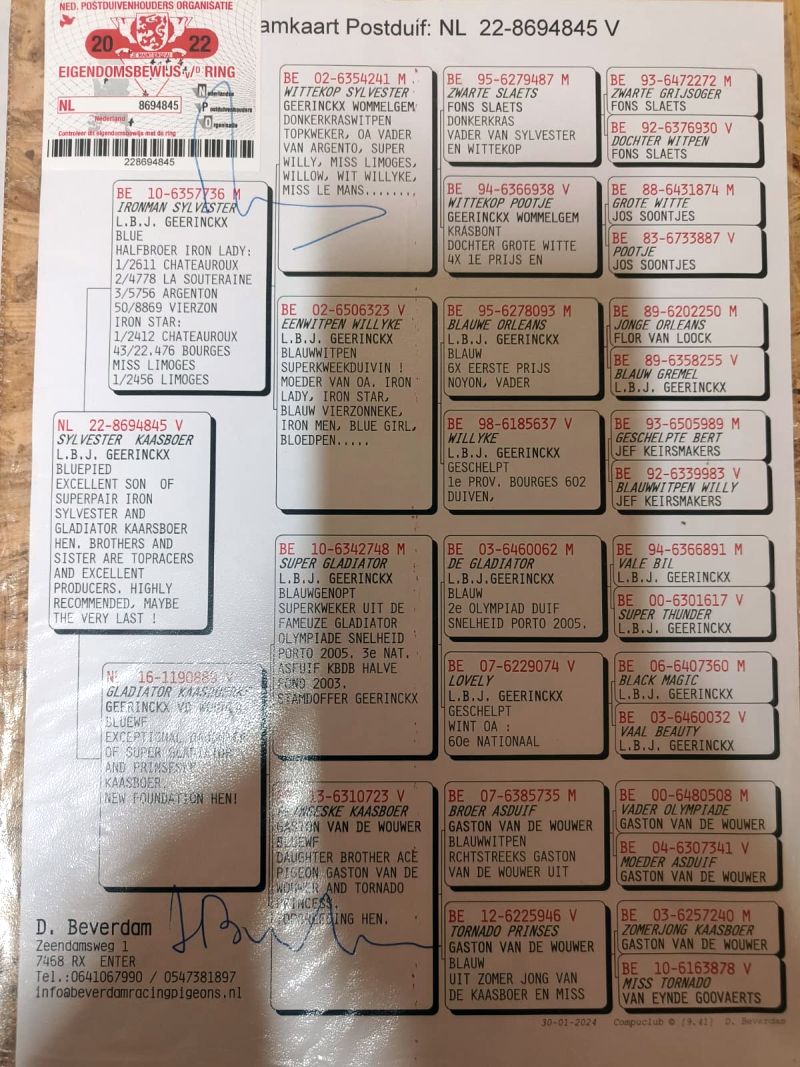 NED. POSTDUIVENHOUDERS ORGANISATIE
20 22
EIGENDOMSBEWIJS v/D RING
NL 8694845
Nederland
Nederlandse
Postduivenhouders
Organisatie
Controleer dit eigendomsbewijs met de ring
228694845
amkaart Postduif: NL 22-8694845 V
NL 22-8694845 V
SYLVESTER KAASBOER
L.B.J. GEERINCKX
BLUEPIED
EXCELLENT SON OF
SUPERPAIR IRON
SYLVESTER AND
GLADIATOR KAARSBOER
HEN. BROTHERS AND
SISTER ARE TOPRACERS
AND EXCELLENT
PRODUCERS. HIGHLY
RECOMMENDED, MAYBE
THE VERY LAST !
BE 10-6357736 M
IRONMAN SYLVESTER
L.B.J. GEERINCKX
BLUE
HALFBROER IRON LADY:
1/2611 CHATEAUROUX
2/4778 LA SOUTERAINE
3/5756 ARGENTON
50/8869 VIERZON
IRON STAR:
1/2412 CHATEAUROUX
43/22.476 BOURGES
MISS LIMOGES
1/2456 LIMOGES
NL 16-1190889 V
GLADIATOR
GEERINCKX VD
BLUEWF
EXCEPTIONAL
OF SUPER GLADIATOR
AND PRINSESKE
KAASBOER.
NEW FOUNDATION HEN!
BE 02-6354241 M
WITTEKOP SYLVESTER
GEERINCKX WOMMELGEM
DONKERKRASWITPEN
TOPKWEKER, OA VADER
VAN ARGENTO, SUPER
WILLY, MISS LIMOGES,
WILLOW, WIT WILLYKE,
MISS LE MANS.......
BE 02-6506323 V
EENWITPEN WILLYKE
L.B.J. GEERINCKX
BLAUWWITPEN
SUPERKWEEKDUIVIN !
MOEDER VAN OA. IRON
LADY, IRON STAR,
BLAUW VIERZONNEKE,
IRON MEN, BLUE GIRL,
BLOEDPEN.....
BE 10-6342748 M
SUPER GLADIATOR
L.B.J. GEERINCKX
BLAUWGENOPT
SUPERKWEKER UIT DE
FAMEUZE GLADIATOR
OLYMPIADE SNELHEID
PORTO 2005. 3e NAT.
ASFUIF KBDB HALVE
FOND 2003.
STAMDOFFER GEERINCKX
13-6310723 V
KAASBOER
GASTON VAN DE WOUWER
BLUEWF
DAUGHTER BROTHER ACE
PIGEON GASTON VAN DE
WOUWER AND TORNADO
PRINCESS.
HEN.
BE 95-6279487 M
ZWARTE SLAETS
FONS SLAETS
DONKERKRAS
VADER VAN SYLVESTER
EN WITTEKOP
BE 94-6366938 V
WITTEKOP POOTJE
GEERINCKX WOMMELGEM
KRASBONT
DOCHTER GROTE WITTE
4X 1E PRIJS EN
BE 95-6278093 M
BLAUWE ORLEANS
L.B.J. GEERINCKX
BLAUW
6X EERSTE PRIJS
NOYON, VADER
BE 98-6185637 V
WILLYKE
L.B.J. GEERINCKX
GESCHELPT
1e PROV. BOURGES 602
DUIVEN,
BE 03-6460062 M
DE GLADIATOR
L.B.J.GEERINCKX
BLAUW
2e OLYMPIAD DUIF
SNELHEID PORTO 2005.
BE 07-6229074 V
LOVELY
L.B.J. GEERINCKX
GESCHELPT
WINT OA :
60e NATIONAAL
BE 07-6385735 M
BROER ASDUIF
GASTON VAN DE WOUWER
BLAUWWITPEN
RCHTSTREEKS GASTON
VAN DE WOUWER UIT
BE 12-6225946 V
TORNADO PRINSES
GASTON VAN DE WOUWER
BLAUW
UIT ZOMER JONG VAN
DE KAASBOER EN MISS
BE 93-6472272 M
ZWARTE GRIJSOGER
FONS SLAETS
BE 92-6376930 V
DOCHTER WITPEN
FONS SLAETS
BE 88-6431874 M
GROTE WITTE
JOS SOONTJES
BE 83-6733887 V
POOTJE
JOS SOONTJES
BE 89-6202250 M
JONGE ORLEANS
FLOR VAN LOOCK
BE 89-6358255 V
BLAUW GREMEL
L.B.J. GEERINCKX
BE 93-6505989 M
GESCHELPTE BERT
JEF KEIRSMAKERS
BE 92-6339983 V
BLAUWWITPEN WILLY
JEF KEIRSMAKERS
BE 94-6366891 M
VALE BIL
L.B.J. GEERINCKX
BE 00-6301617 V
SUPER THUNDER
L.B.J. GEERINCKX
BE 06-6407360 M
BLACK MAGIC
L.B.J. GEERINCKX
BE 03-6460032 V
VAAL BEAUTY
L.B.J. GEERINCKX
BE 00-6480508 M
VADER OLYMPIADE
GASTON VAN DE WOUWER
BE 04-6307341 V
MOEDER ASDUIF
GASTON VAN DE WOUWER
BE 03-6257240 M
ZOMERJONG KAASBOER
GASTON VAN DE WOUWER
BE 10-6163878 V
MISS TORNADO
VAN EYNDE GOOVAERTS
D. Beverdam
Zeendamsweg 1
7468 RX ENTER
Tel.:0641067990 / 0547381897
info@beverdamracingpigeons.nl
30-01-2024 Compuclub © [9.41] D. Beverdam